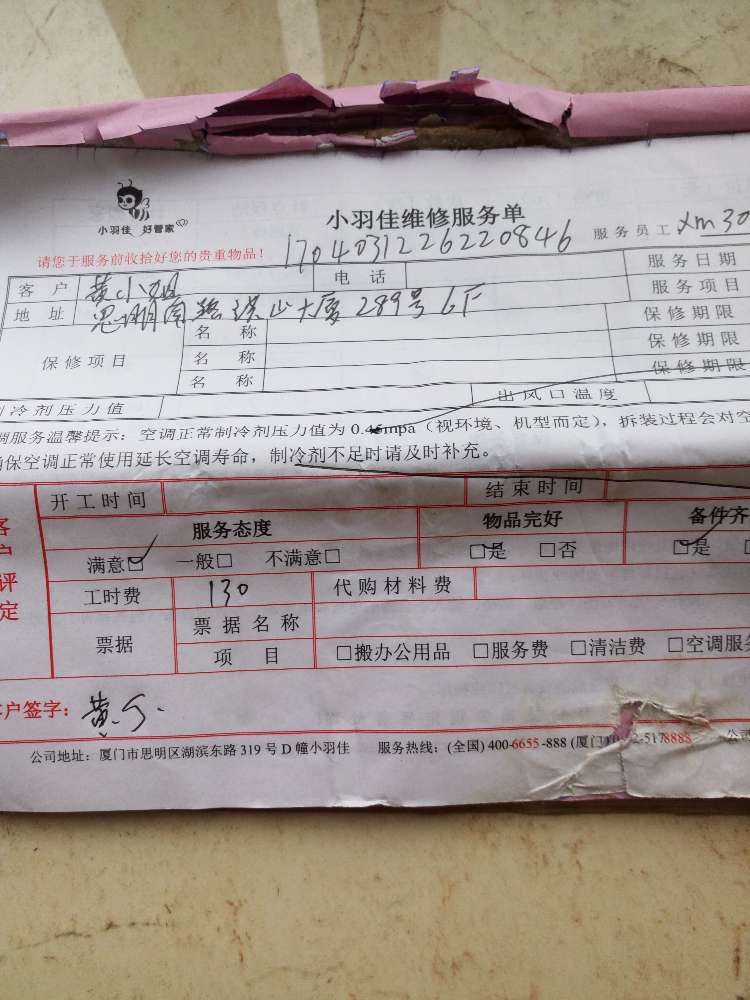 小羽佳 好管家
小羽佳维修服务单
请您于服务前收拾好您的贵重物品！
1704031226220846
服务员工 xm30
客户 黄小姐 电话 服务日期
地址 思明南路 大厦289号6F 服务项目
保修项目 名称 保修期限
名称 保修期限
名称 保修期限
冷剂压力值 出风口温度
调服务温馨提示：空调正常制冷剂压力值为0.45mpa（视环境、机型而定），拆装过程会对空
确保空调正常使用延长空调寿命，制冷剂不足时请及时补充。
客户评定
开工时间 结束时间
服务态度 物品完好 备件齐
满意☑ 一般□ 不满意□ ☑是 □否 ☑是
工时费 130 代购材料费
票据 票据名称
项目 □搬办公用品 □服务费 □清洁费 □空调服务
客户签字：黄
公司地址：厦门市思明区湖滨东路319号D幢小羽佳 服务热线：(全国)400-6655-888(厦门) 2-5178888 公司